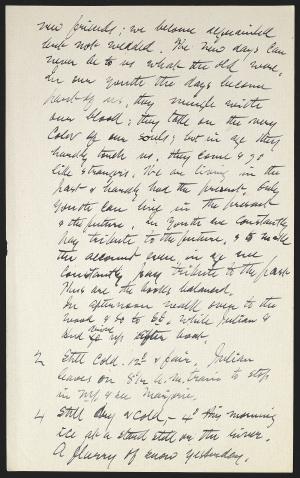 new friends; we become acquainted
but not wedded. The new days can
never be to us what the old were.
In our youth the days become
part of us, they mingle with
our blood; they take on the very
color of our souls; but in age they
hardly touch us. They come & go
like strangers. We are living in the
past & hardly heed the present. Only
youth can live in the present
& the future. In youth we constantly
pay tribute to the future, & to make
the account even, in age we
constantly pay tribute to the past
Thus are the books balanced.
In afternoon walk over to the
wood & to, while Julian &
and up
2 Still cold. 12° & fair. Julian
leaves on A.M. train to stop
in N.Y. & see Marjorie.
4 Still dry & cold, – 4° this morning
ice at a stand still on the river.
A flurry of snow yesterday.